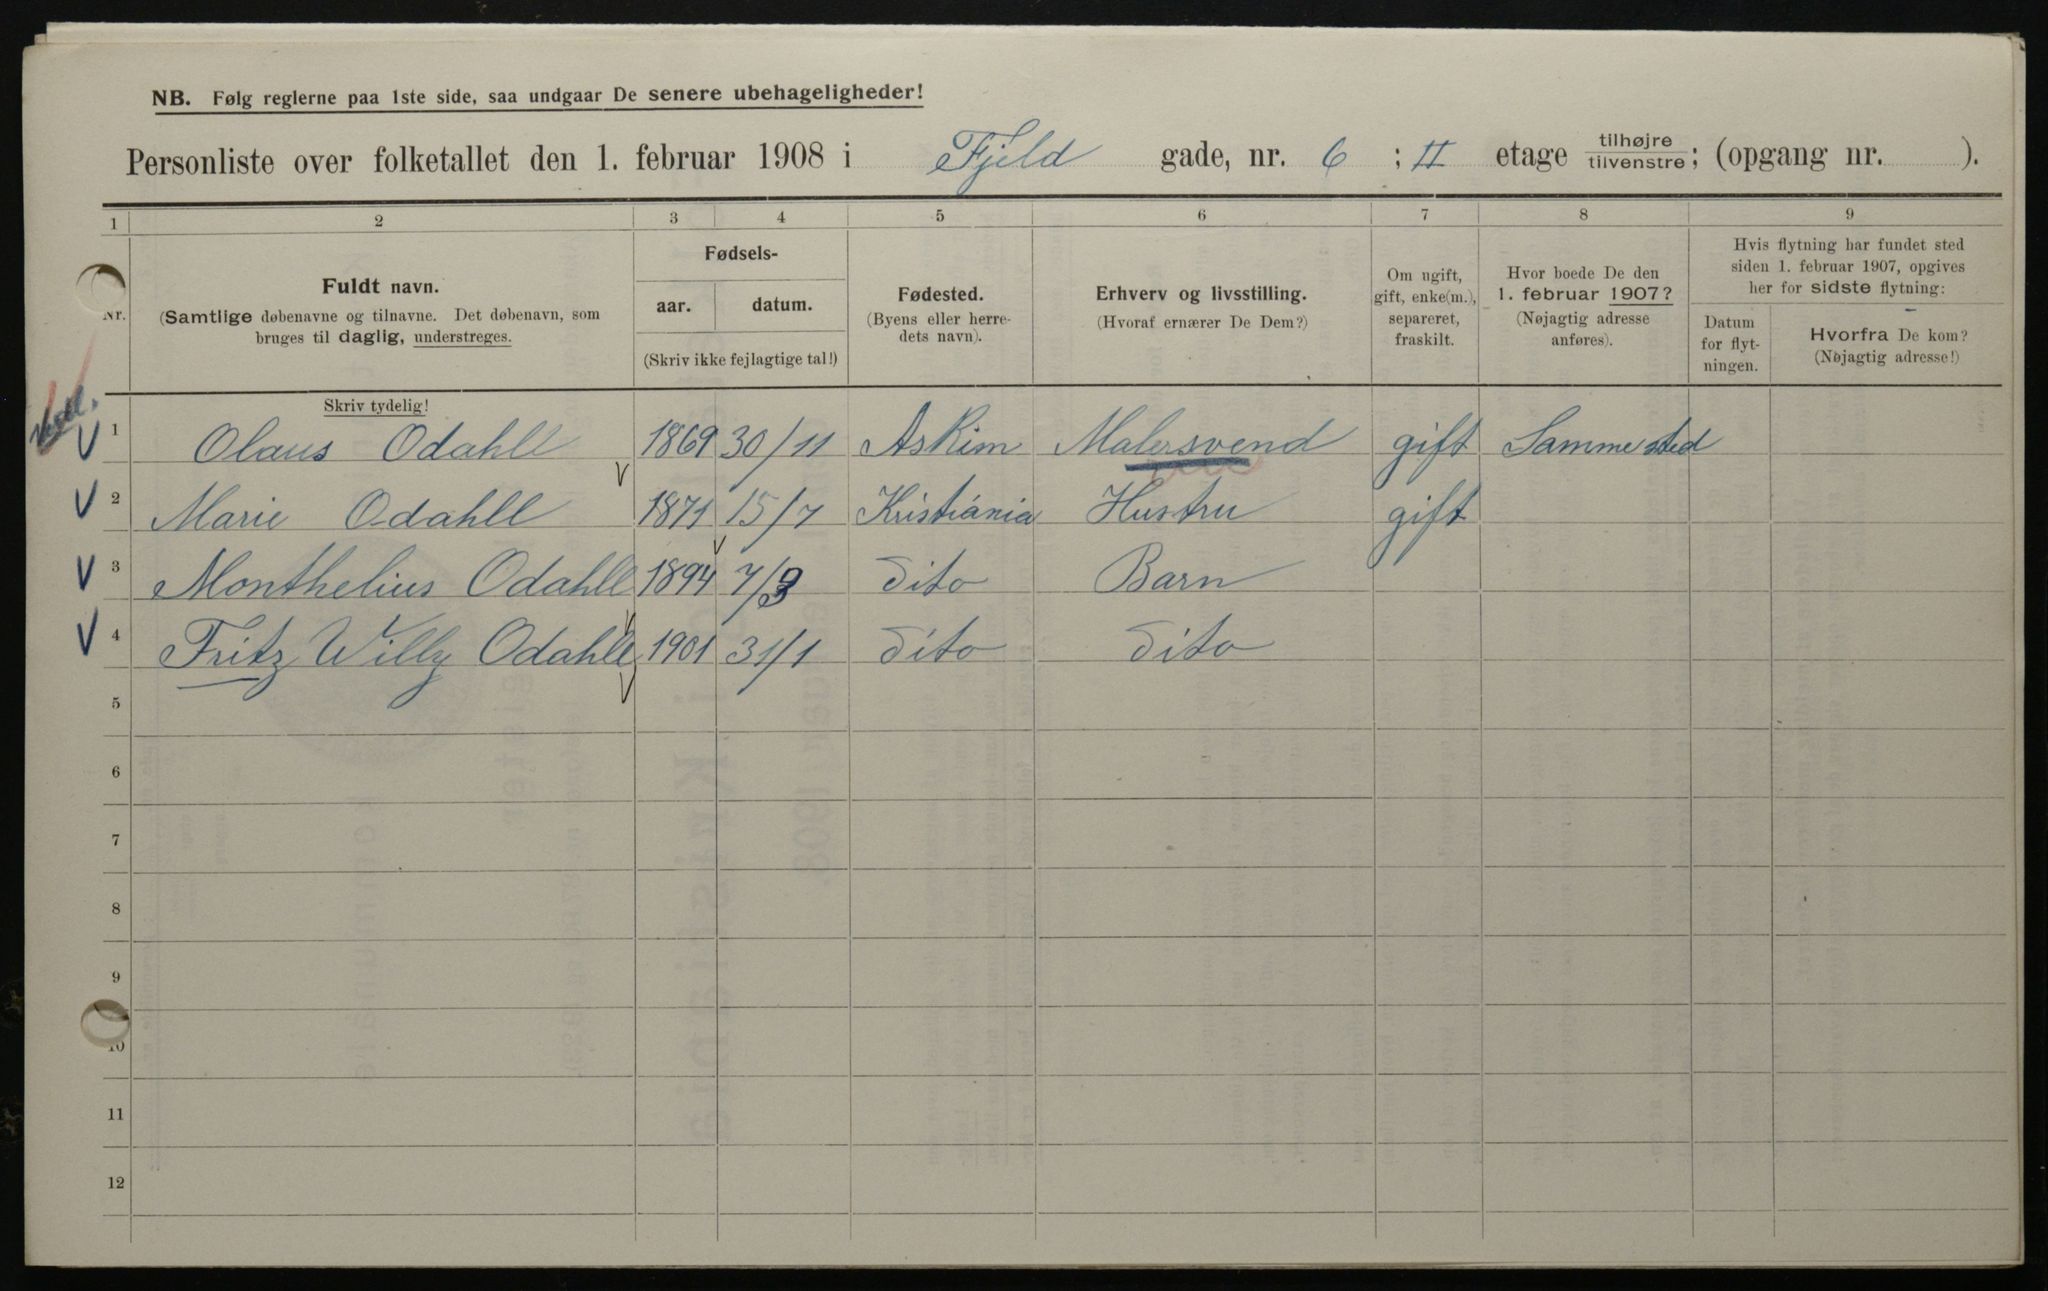 NB. Følg reglerne paa 1ste side, saa undgaar De senere ubehageligheder!
Personliste over folketallet den 1. februar 1908 i Fjeld gade, nr. 6 ; II etage tilhøjre/tilvenstre; (opgang nr. ).
1 2 3 4 5 6 7 8 9
Nr.
Fuldt navn.
(Samtlige døbenavne og tilnavne. Det døbenavn, som
bruges til daglig, understreges.
Skriv tydelig!
Fødsels-
aar. datum.
(Skriv ikke fejlagtige tal!)
Fødested.
(Byens eller herre-
dets navn).
Erhverv og livsstilling.
(Hvoraf ernærer De Dem?)
Om ugift,
gift, enke(m.),
separeret,
fraskilt.
Hvor boede De den
1. februar 1907?
(Nøjagtig adresse
anføres).
Hvis flytning har fundet sted
siden 1. februar 1907, opgives
her for sidste flytning:
Datum
for flyt-
ningen.
Hvorfra De kom?
(Nøjagtig adresse!)
1 Olaus Odahll 1869 30/11 Askim Malersvend gift Samme sted
2 Marie Odahll 1871 15/7 Kristiania Hustru gift
3 Monthelius Odahll 1894 7/3 Dito Barn
4 Fritz Willy Odahll 1901 31/1 Dito Dito
5
6
7
8
9
10
11
12